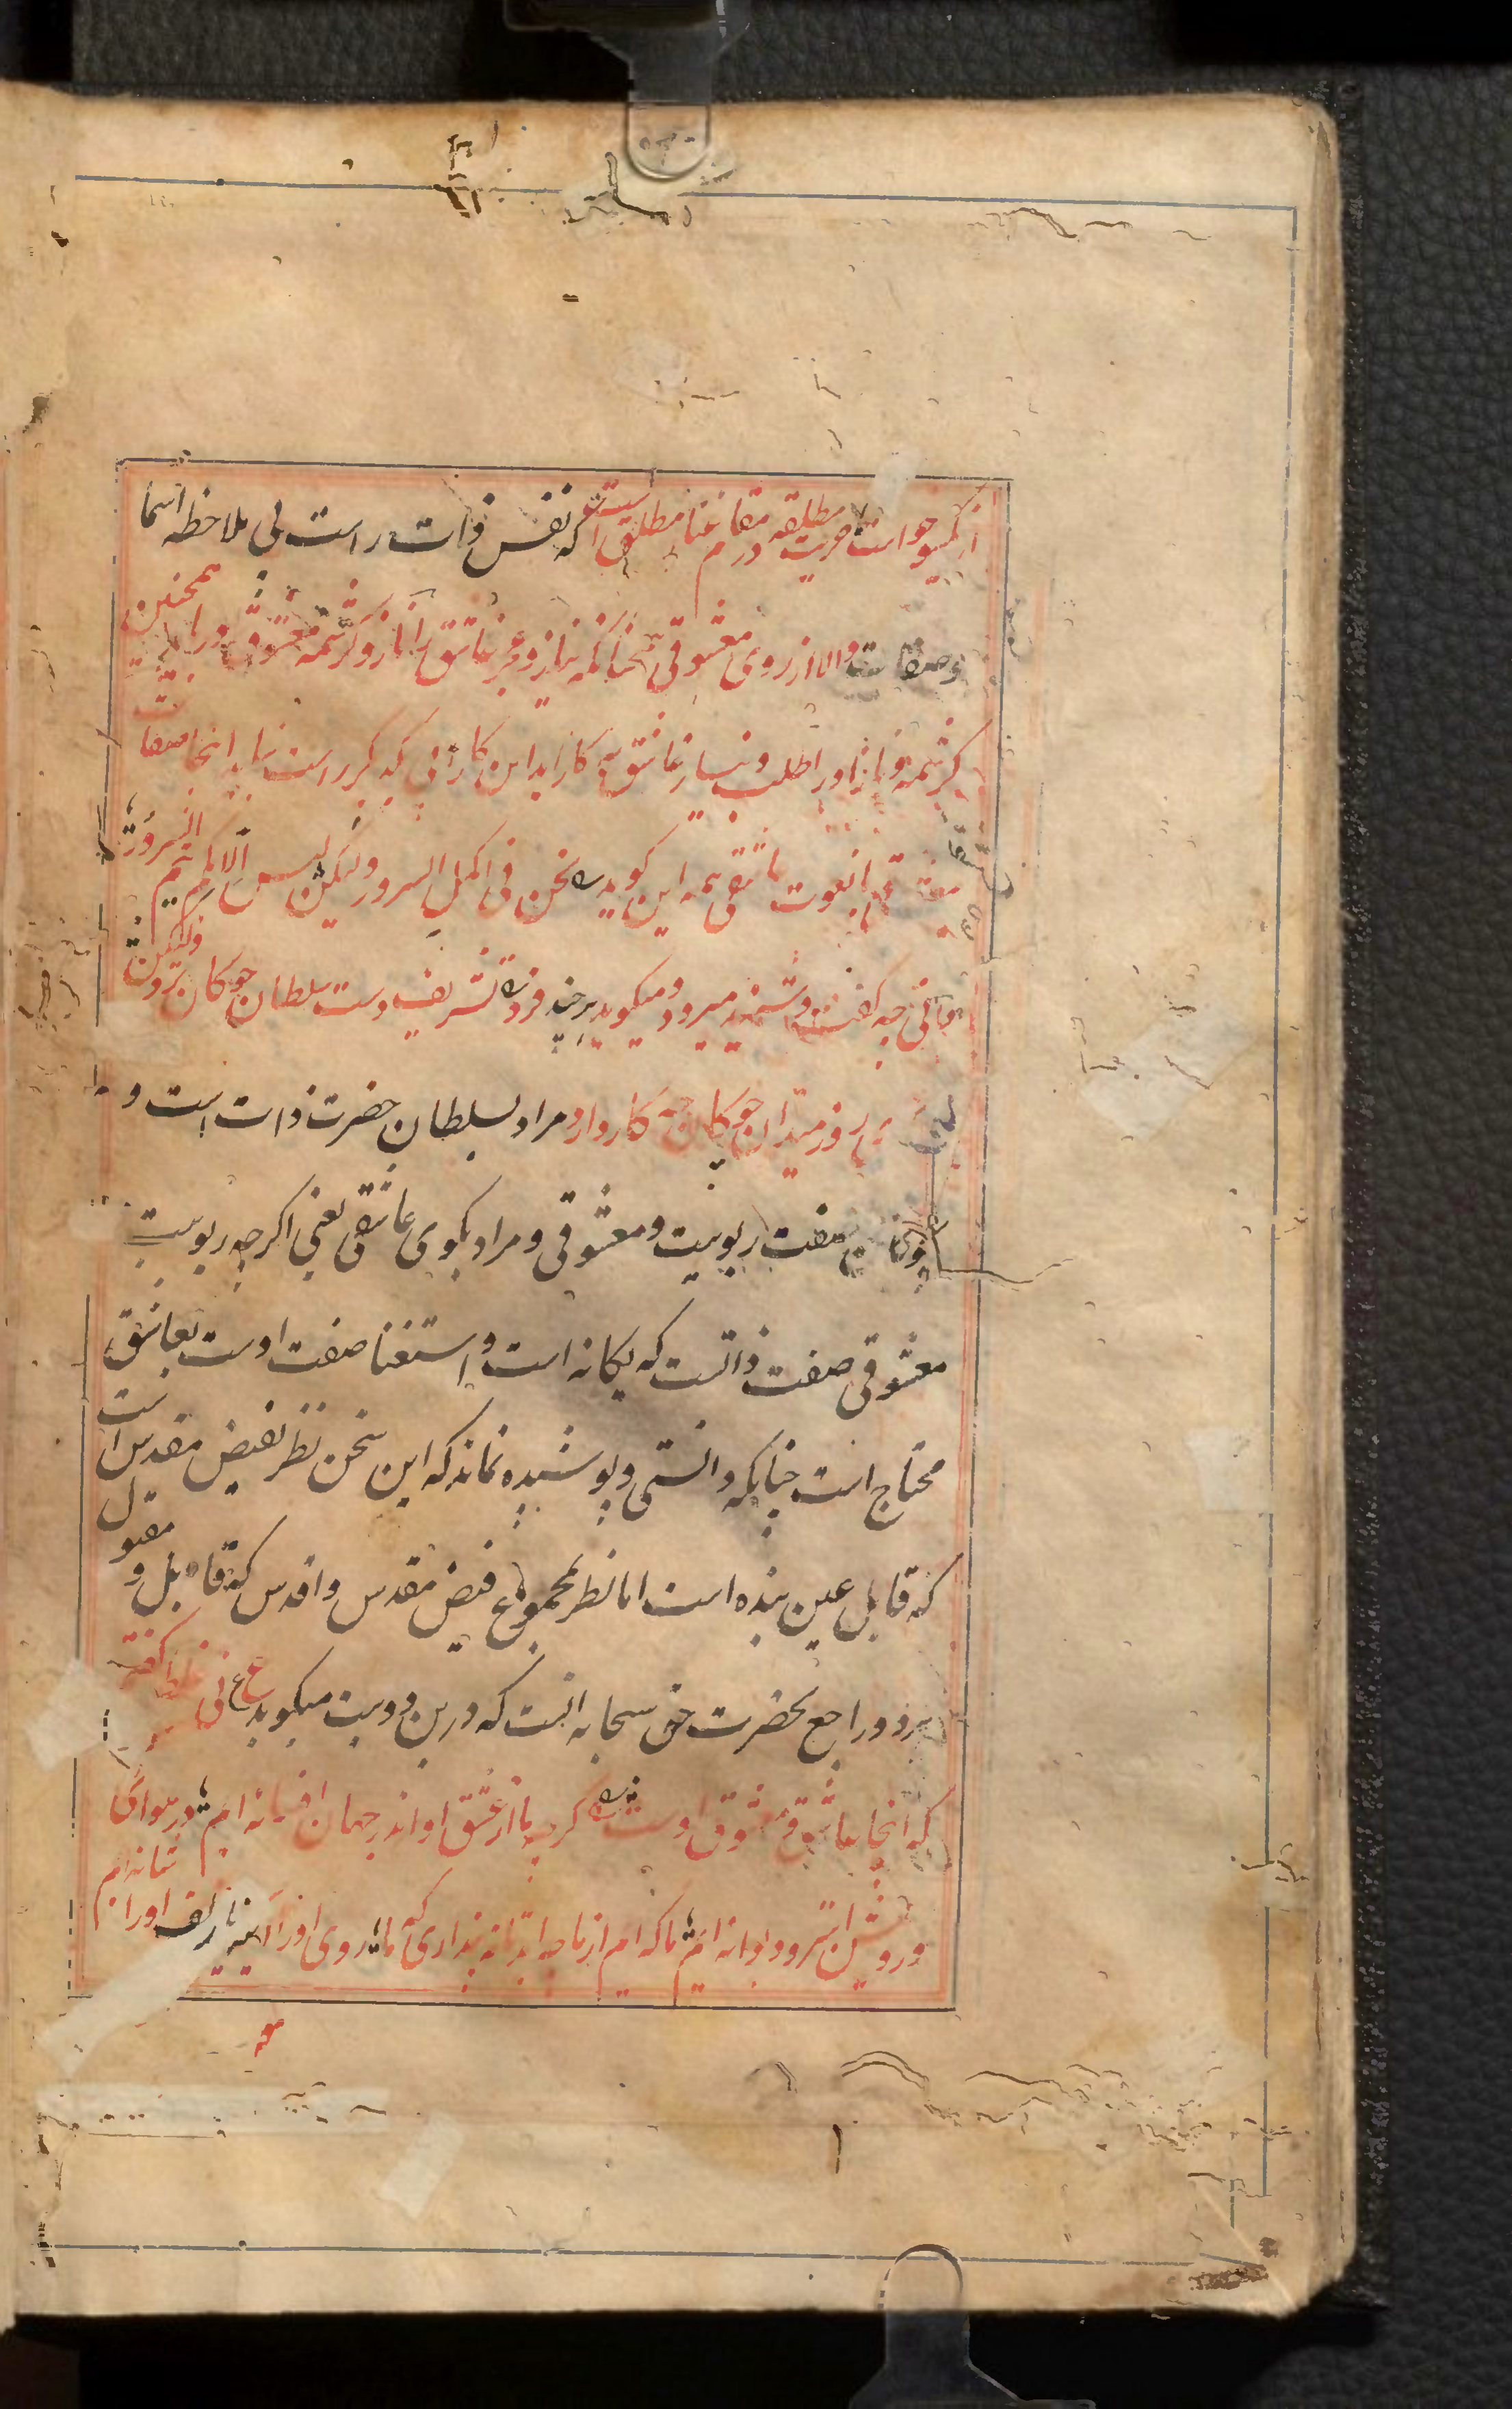 حریت مطلقه در مقام غنا مطلق است که نفس ذات راست بی ملاحظه اسما
وصفات واما از روی معشوقی همچنانکه نیاز و عجز عاشق را ناز و کرشمه معشوق در باید همچنین
کرشمه و ناز او را طلب و نیاز عاشق به کار اید این کار بی یکدیگر راست نیاید اینجا صفات
معشوقی با نعوت عاشقی همه این گوید نحن فی اکمل السرور ولیکن لیس الا بکم یتم السرور
عراقی چه گفت و شنید میرود و میگوید هر چند فرد تشریف دست سلطان چوگان برد ولیکن
بی گوی روز میدان چوگان چه کار دارد مراد بسلطان حضرت ذات است و
چوگان صفت ربوبیت و معشوقی و مراد بگوی عاشق یعنی اگر چه ربوبیت
معشوقی صفت ذاتست که یگانه است و استغنا صفت اوست بعاشق
محتاج است چنانکه دانستی و پوشیده نماند که این سخن نظر بفیض مقدس است
که قابل عین بنده است اما نظر بمجموع فیض مقدس و اقدس که قابل و مقبول
هر دو راجع بحضرت حق سبحانه انست که درین دو بیت میگوید ع نی غلط گفتم
که انجا عاشق و معشوق اوست گر چه ما از عشق او اندر جهان افسانه ایم در هوای
ما که ایم از ما چه اید تا نه پنداری که ما روی او را آیینه یا زلف او را شانه ایم